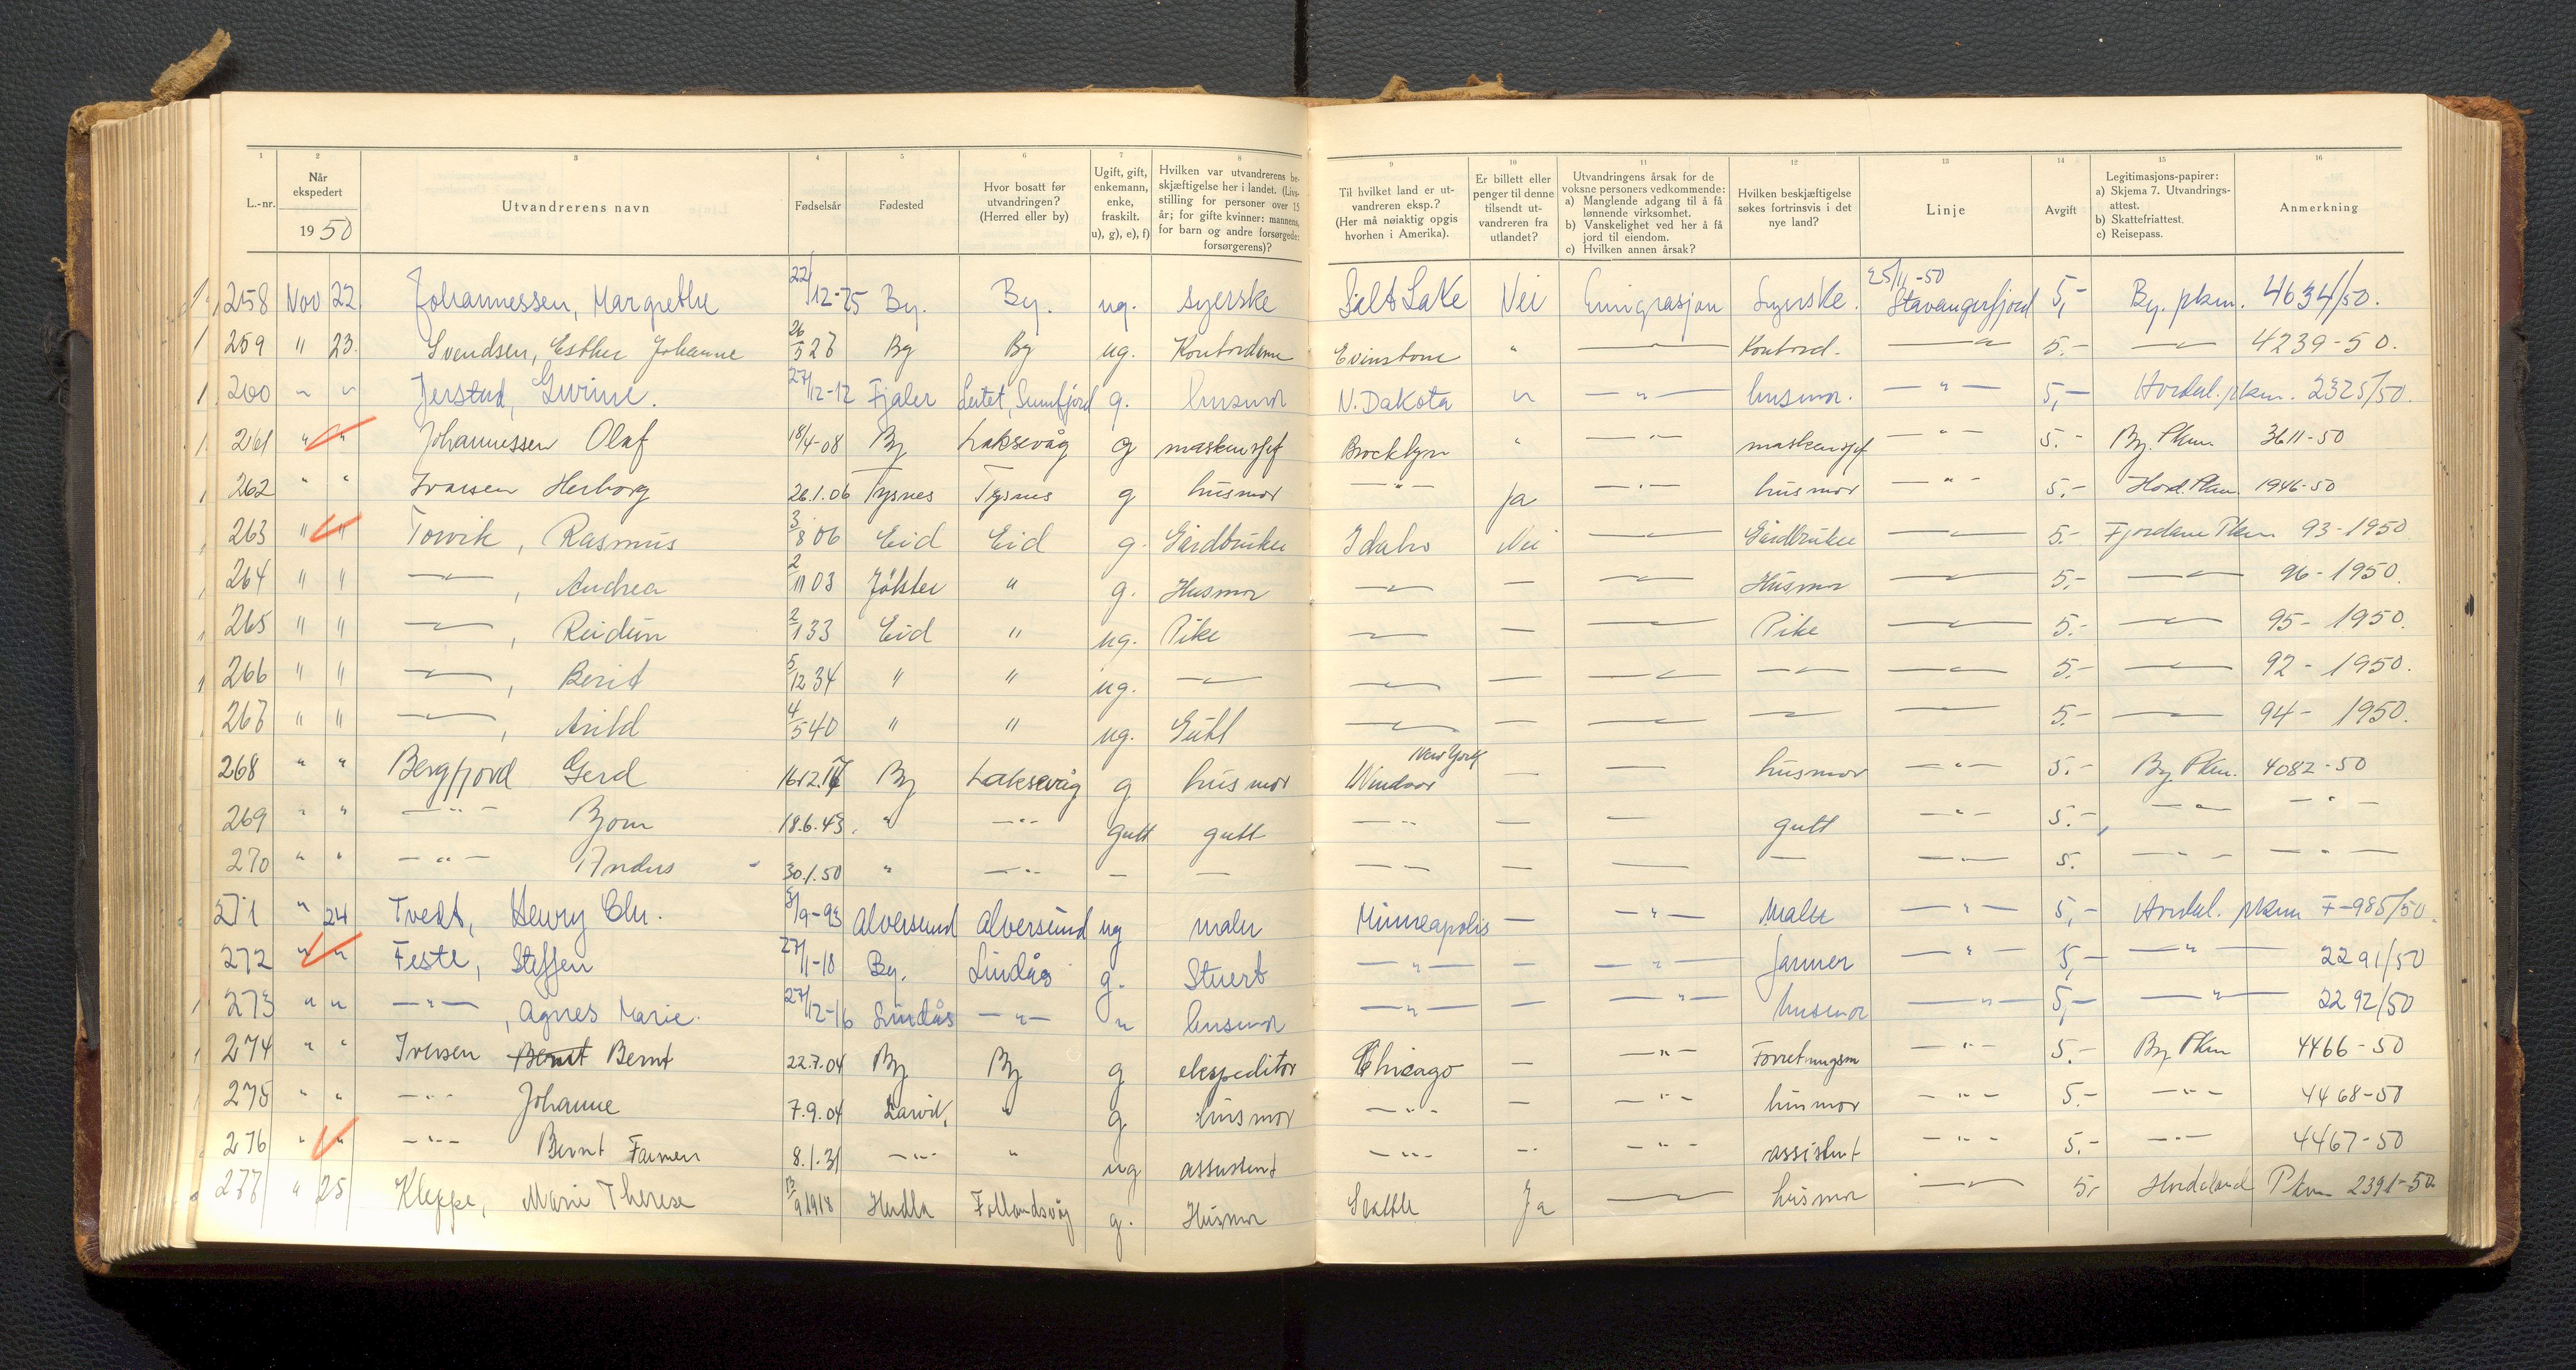 1 2 3 4 5 6 7 8 9 10 11 12 13 14 15 16
L.-nr. | Når ekspedert 1950 | Utvandrerens navn | Fødselsår | Fødested | Hvor bosatt før utvandringen? (Herred eller by) | Ugift, gift, enkemann, enke, fraskilt. u), g), e), f) | Hvilken var utvandrerens beskjæftigelse her i landet. (Livsstilling for personer over 15 år; for gifte kvinner: mannens, for barn og andre forsørgede: forsørgerens)? | Til hvilket land er utvandreren eksp.? (Her må nøiaktig opgis hvorhen i Amerika). | Er billett eller penger til denne tilsendt utvandreren fra utlandet? | Utvandringens årsak for de voksne personers vedkommende: a) Manglende adgang til å få lønnende virksomhet. b) Vanskelighet ved her å få jord til eiendom. c) Hvilken annen årsak? | Hvilken beskjæftigelse søkes fortrinsvis i det nye land? | Linje | Avgift | Legitimasjons-papirer: a) Skjema 7. Utvandrings-attest. b) Skattefriattest. c) Reisepass. | Anmerkning
1258 Nov 22 Johannessen, Margrethe 22/12-25 By. By. ug. syerske Salt Lake Nei Emigrasjon Syerske. 25/11-50 Stavangerfjord 5,- By. pkm. 4634/50.
259 " 23. Svendsen, Esther Johanne 26/5 27 By By ug. Kontordame " — Kontord. — 5.- — 4239-50.
260 " " Jerstad, 27/12-12 Fjaler g. husmor N. Dakota " — " — husmor. — " — 5,- Hordal. pkm. 2325/50.
261 " " Johannessen Olaf 18/4-08 By Laksevåg g maskensjef Brocklyn " — " — maskensjef — " — 5.- By. Pkm 3611-50
262 " " Ivarsen Herborg 26.1.06 Tysnes Tysnes g husmor — " — Ja — " — husmor — " — 5.- Hord. Pkm. 1946-50
263 " " Torvik, Rasmus 3/8 06 Eid Eid g. Gårdbruker Idaho Nei — Gårdbruker — 5.- Fjordane Pkm 93-1950
264 " " — , Andrea 2/11 03 Jølster " g. Husmor — — — Husmor — 5.- — 96-1950.
265 " " — , Reidun 2/1 33 Eid " ug. Pike — — — Pike — 5.- — 95-1950.
266 " " — , Berit 5/12 34 " " ug. — — — — — — 5.- — 92-1950.
267 " " — , Arild 4/5 40 " " ug. Gutt — — — — — 5.- — 94-1950.
268 " " Bergfjord Gerd 16.12. By Laksevåg g husmor Windsor New York — — husmor — " — 5.- By Pkm. 4082-50
269 " " — " — Bjorn 18.6.43. " — " — gutt gutt — " — — — gutt — " — 5.- — " — — " —
270 " " — " — Anders 30.1.50 " — " — — — — — — — — — " — 5. — " — — " —
271 " 24 Tvedt, Henry Chr. 8/9-93 Alversund Alversund ug maler Minneapolis — — " — Maler — " — 5,- Hordal. pkm F-985/50.
272 " " Feste, Steffen 27/1-18 By. Lindås g. Stuert — " — — — " — farmer — " — 5,- — " — 2291/50
273 " " — " — , Agnes Marie. 27/12-16 Lindås — " — " husmor — " — — — " — husmor — " — 5,- — " — 2292/50
274 " " Iversen Bernt Bernt 22.7.04 By By g ekspeditør Chicago — — " — Forretningsm — " — 5.- By Pkm 4466-50
275 " " — " — Johanne 7.9.04 Larvik, " g husmor — " — — — " — husmor — " — 5.- — " — 4468-50
276 " " — " — Bernt 8.1.31 — " — " ug assistent — " — — — " — assistent — " — 5.- — " — 4467-50
277 " 25 Kleppe, Marie Therese 13/9 1918 Herdla Follandsvåg g. Husmor Seattle Ja — husmor — 5.- Hordaland Pkm 2391-50